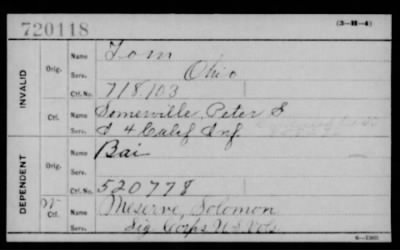 720118
(3-H-4)
INVALID
Orig.
Name Tom
Serv. Ohio
Ctf. No. 718,103
Ctf.
Name Somerville, Peter S
Serv. D 4 Calif Inf.
DEPENDENT
Orig.
Name Bai
Serv.
Ctf. No. 520778
Ctf.
Name Meserve, Solomon
Serv. Sig. Corps U S Vols.